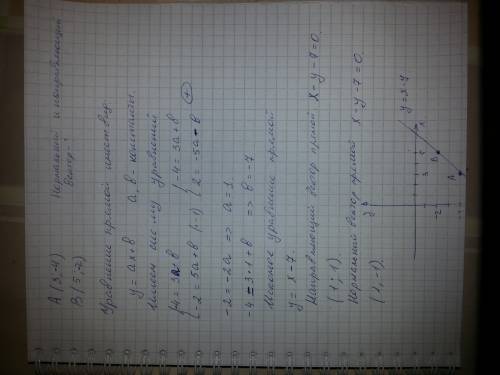 A(3,-4) Нормальный и направляющий
B(5,-2) вектор-?
Уравнение прямой имеет вид
y = ax+b a, b - константы.
Имеем систему уравнений
{-4 = 3a+b {-4 = 3a+b
{-2 = 5a+b (·-1) {2 = -5a-b (+)
-2 = -2a => a = 1.
-4 = 3·1+b => b = -7.
Искомое уравнение прямой
y = x-7.
Направляющий вектор прямой x-y-7=0.
(1,-1).
Нормальный вектор прямой x-y-7=0.
(1,-1).
y = x-7
y
x
3
5
-2
A
B
-7